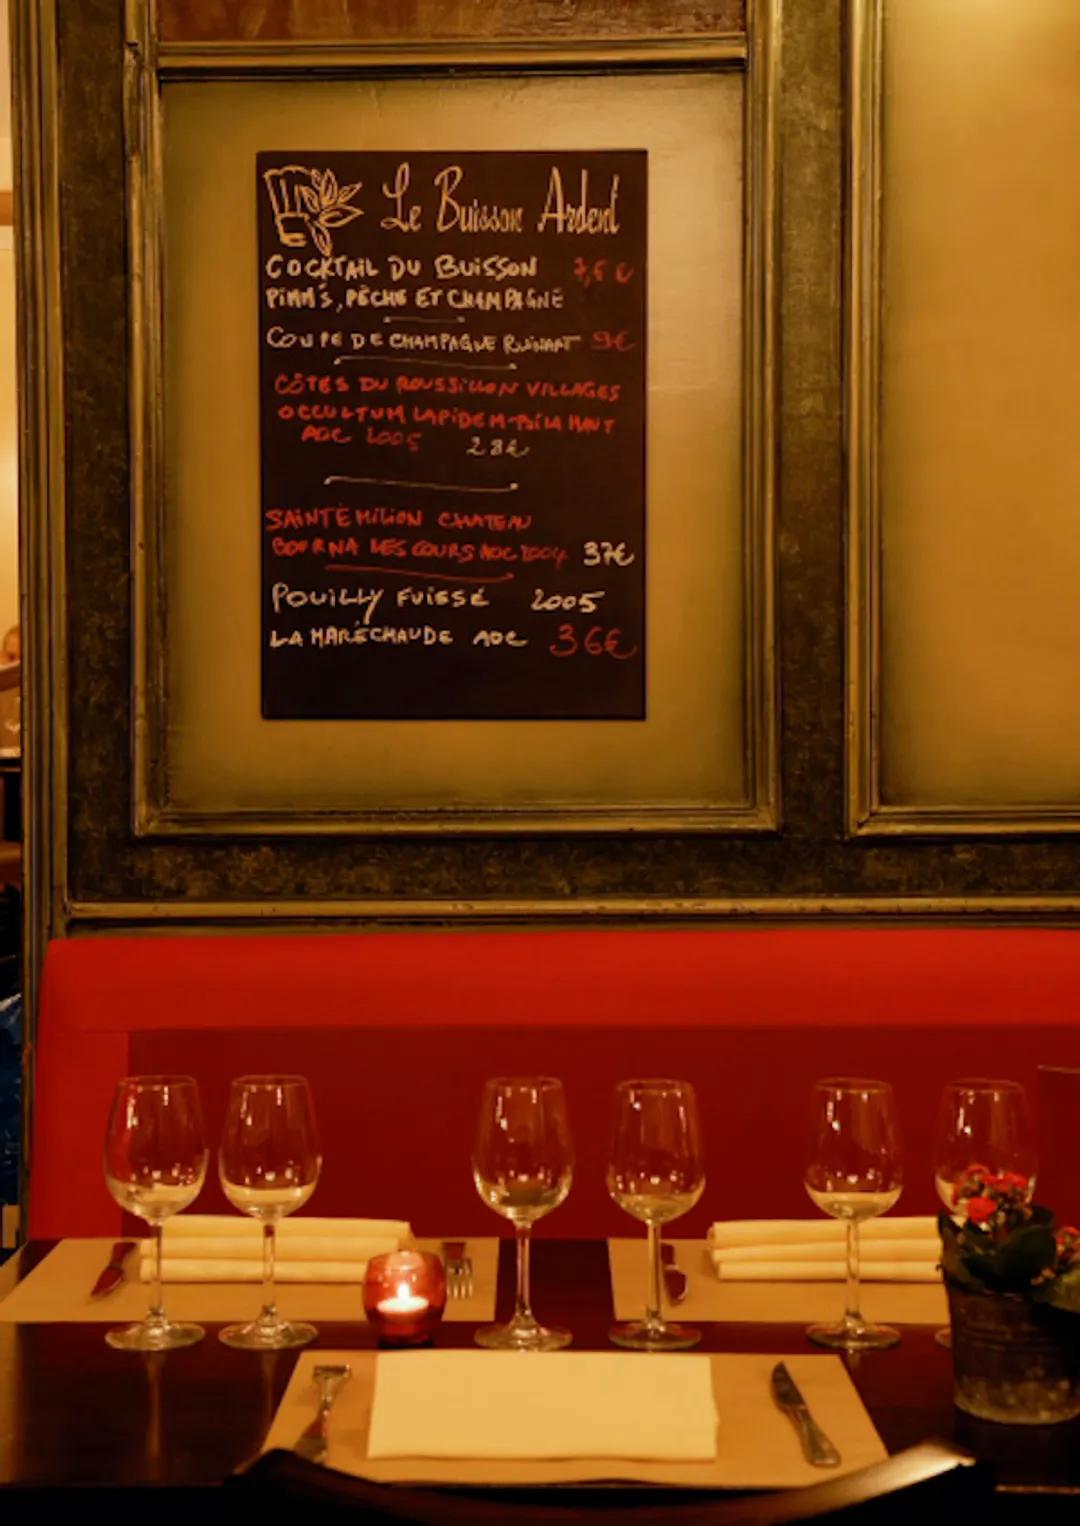 Le Buisson Ardent
COCKTAIL DU BUISSON 7,5 €
PIMM'S, PÊCHE ET CHAMPAGNE
COUPE DE CHAMPAGNE RUINART 9€
CÔTES DU ROUSSILLON VILLAGES
OCCULTUM LAPIDEM-BILA HAUT
AOC 2005 28€
SAINT EMILION CHATEAU
LES COURS AOC 2004 37€
POUILLY FUISSÉ 2005
LA MARÉCHAUDE AOC 36€